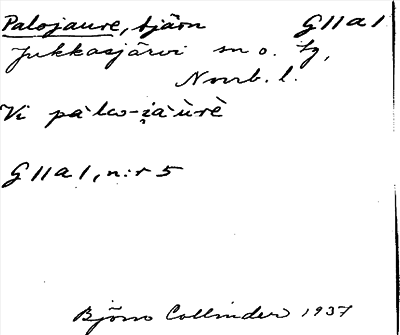 Palojaure, tjärn G 11 a 1
Jukkasjärvi sn o. tg,
Norrb. l.
Vi pàlw-i̯a·ùrè
G 11 a 1, n:r 5
Björn Collinder 1937